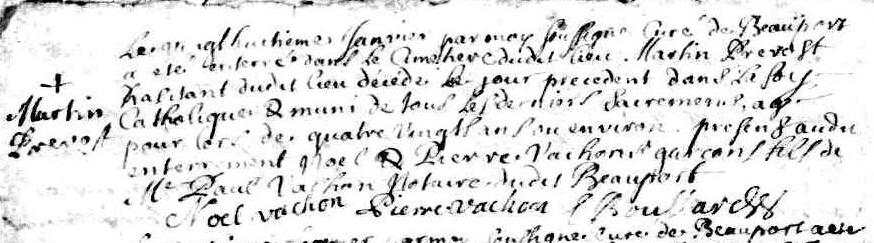 Le vingt huitieme Janvier par moy soussigné Curé de Beauport
a eté enterré dans le Cimetiere dudit lieu Martin Prevost
habitant dudit lieu décédé le jour precedent dans la foy
Catholique & muni de tous les derniers sacremens, agé
pour lors de quatre vingt ans ou environ. presens audit
enterrement Noel & Pierre Vachons garçons fils de
Me Paul Vachon Notaire dudit Beauport
Noel vachon Pierre vachon E Boullard
†
Martin
Prevost
soussigné Curé de Beauport a eté